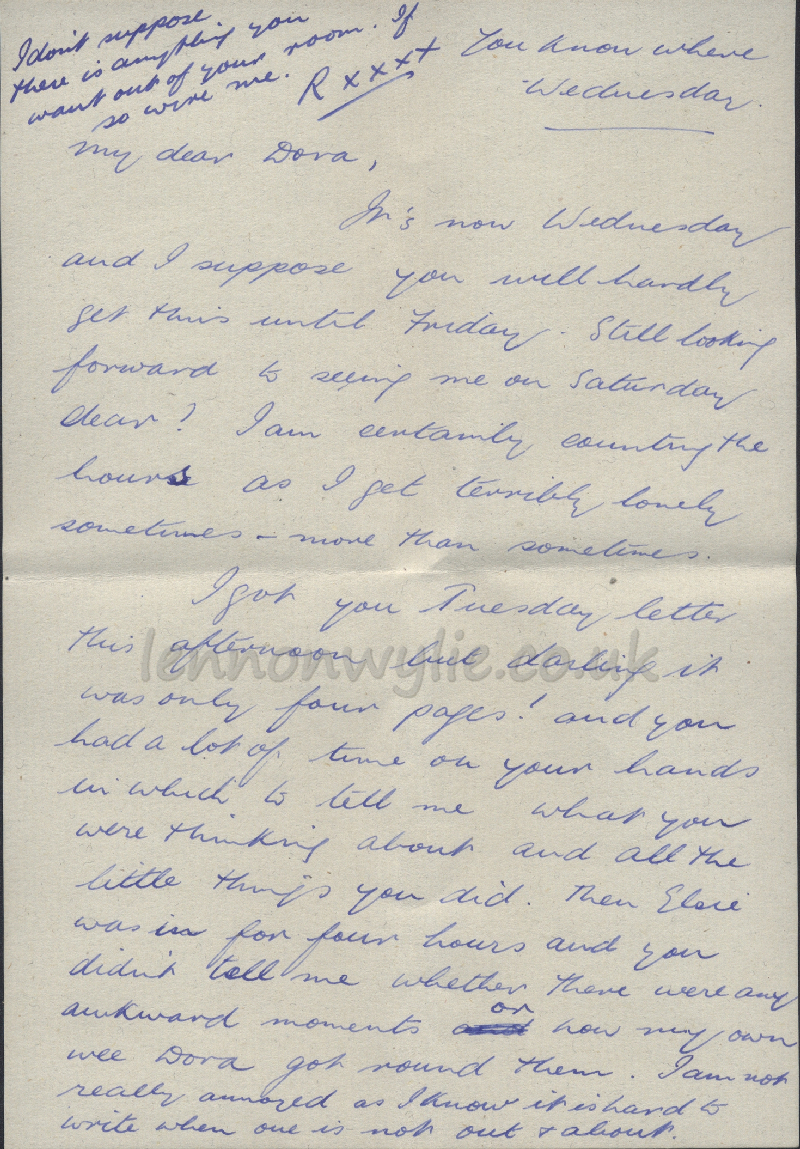 I don't suppose
there is anything you
want out of your room. If
so wire me. R x x x +
You know where
Wednesday.
My dear Dora,
It's now Wednesday
and I suppose you will hardly
get this until Friday. Still looking
forward to seeing me on Saturday
dear? I am certainly counting the
hours as I get terribly lonely
sometimes - more than sometimes.
I got you Tuesday letter
this afternoon but darling it
was only four pages! and you
had a lot of time on your hands
in which to tell me what you
were thinking about and all the
little things you did. Then Elsie
was in for four hours and you
didn't tell me whether there were any
awkward moments or how my own
wee Dora got round them. I am not
really annoyed as I know it is hard to
write when one is not out & about.
lennonwylie.co.uk